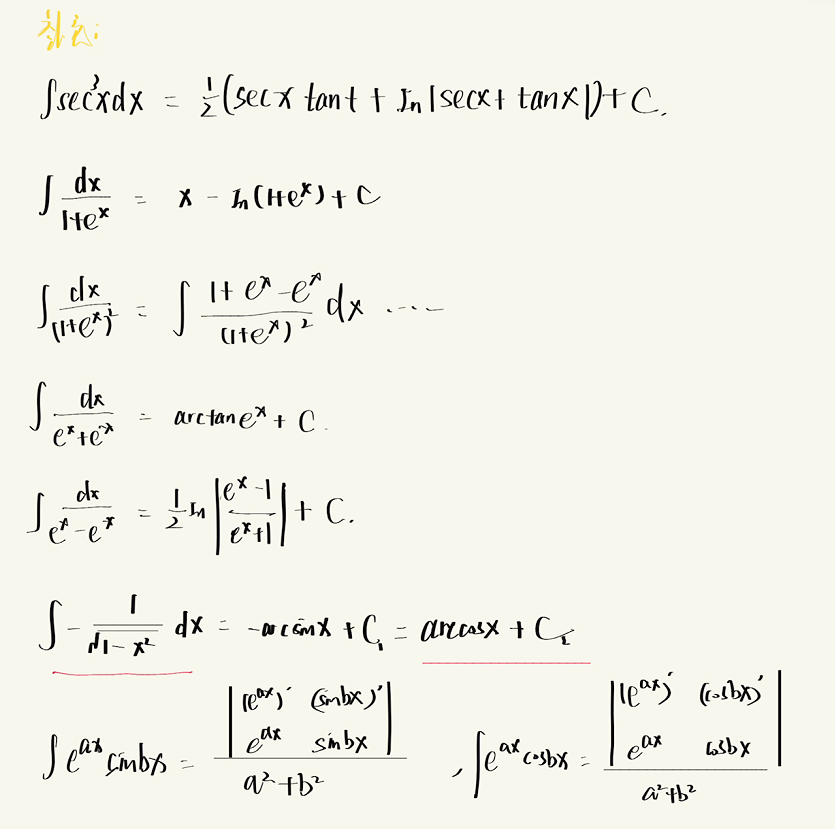 ∫sec³xdx = 1/2(secx tant + ln|secx + tanx|) + C.
∫ dx/(1+eˣ) = x - ln(1+eˣ) + C
∫ dx/(1+eˣ)² = ∫ (1+eˣ-eˣ)/(1+eˣ)² dx ....
∫ dx/(eˣ+e⁻ˣ) = arctan eˣ + C.
∫ dx/(eˣ-e⁻ˣ) = 1/2 ln |(eˣ-1)/(eˣ+1)| + C.
∫ - 1/√(1-x²) dx = -arcsinx + C₁ = arccosx + C₂
∫eᵃˣ sinbx = |(eᵃˣ)' (sinbx)' ; eᵃˣ sinbx| / (a²+b²) , ∫eᵃˣ cosbx = |(eᵃˣ)' (cosbx)' ; eᵃˣ cosbx| / (a²+b²)